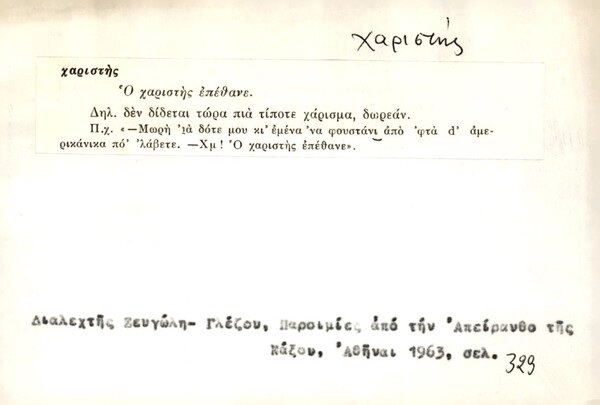 χαριστής
χαριστὴς
Ὁ χαριστὴς ἐπέθανε.
Δηλ. δὲν δίδεται τώρα πιὰ τίποτε χάρισμα, δωρεάν.
Π.χ. «—Μωρὴ ᾿ιὰ δότε μου κι᾿ ἐμένα ᾿να φουστάνι ἀπὸ ᾿φτὰ d᾿ ἀμε-
ρικάνικα πό᾿ ᾿λάβετε. —Χμ! Ὁ χαριστὴς ἐπέθανε».
Διαλεχτῆς Ζευγώλη- Γλέζου, Παροιμίες ἀπό τήν Ἀπείρανθο τῆς
Νάξου, Ἀθῆναι 1963, σελ. 329